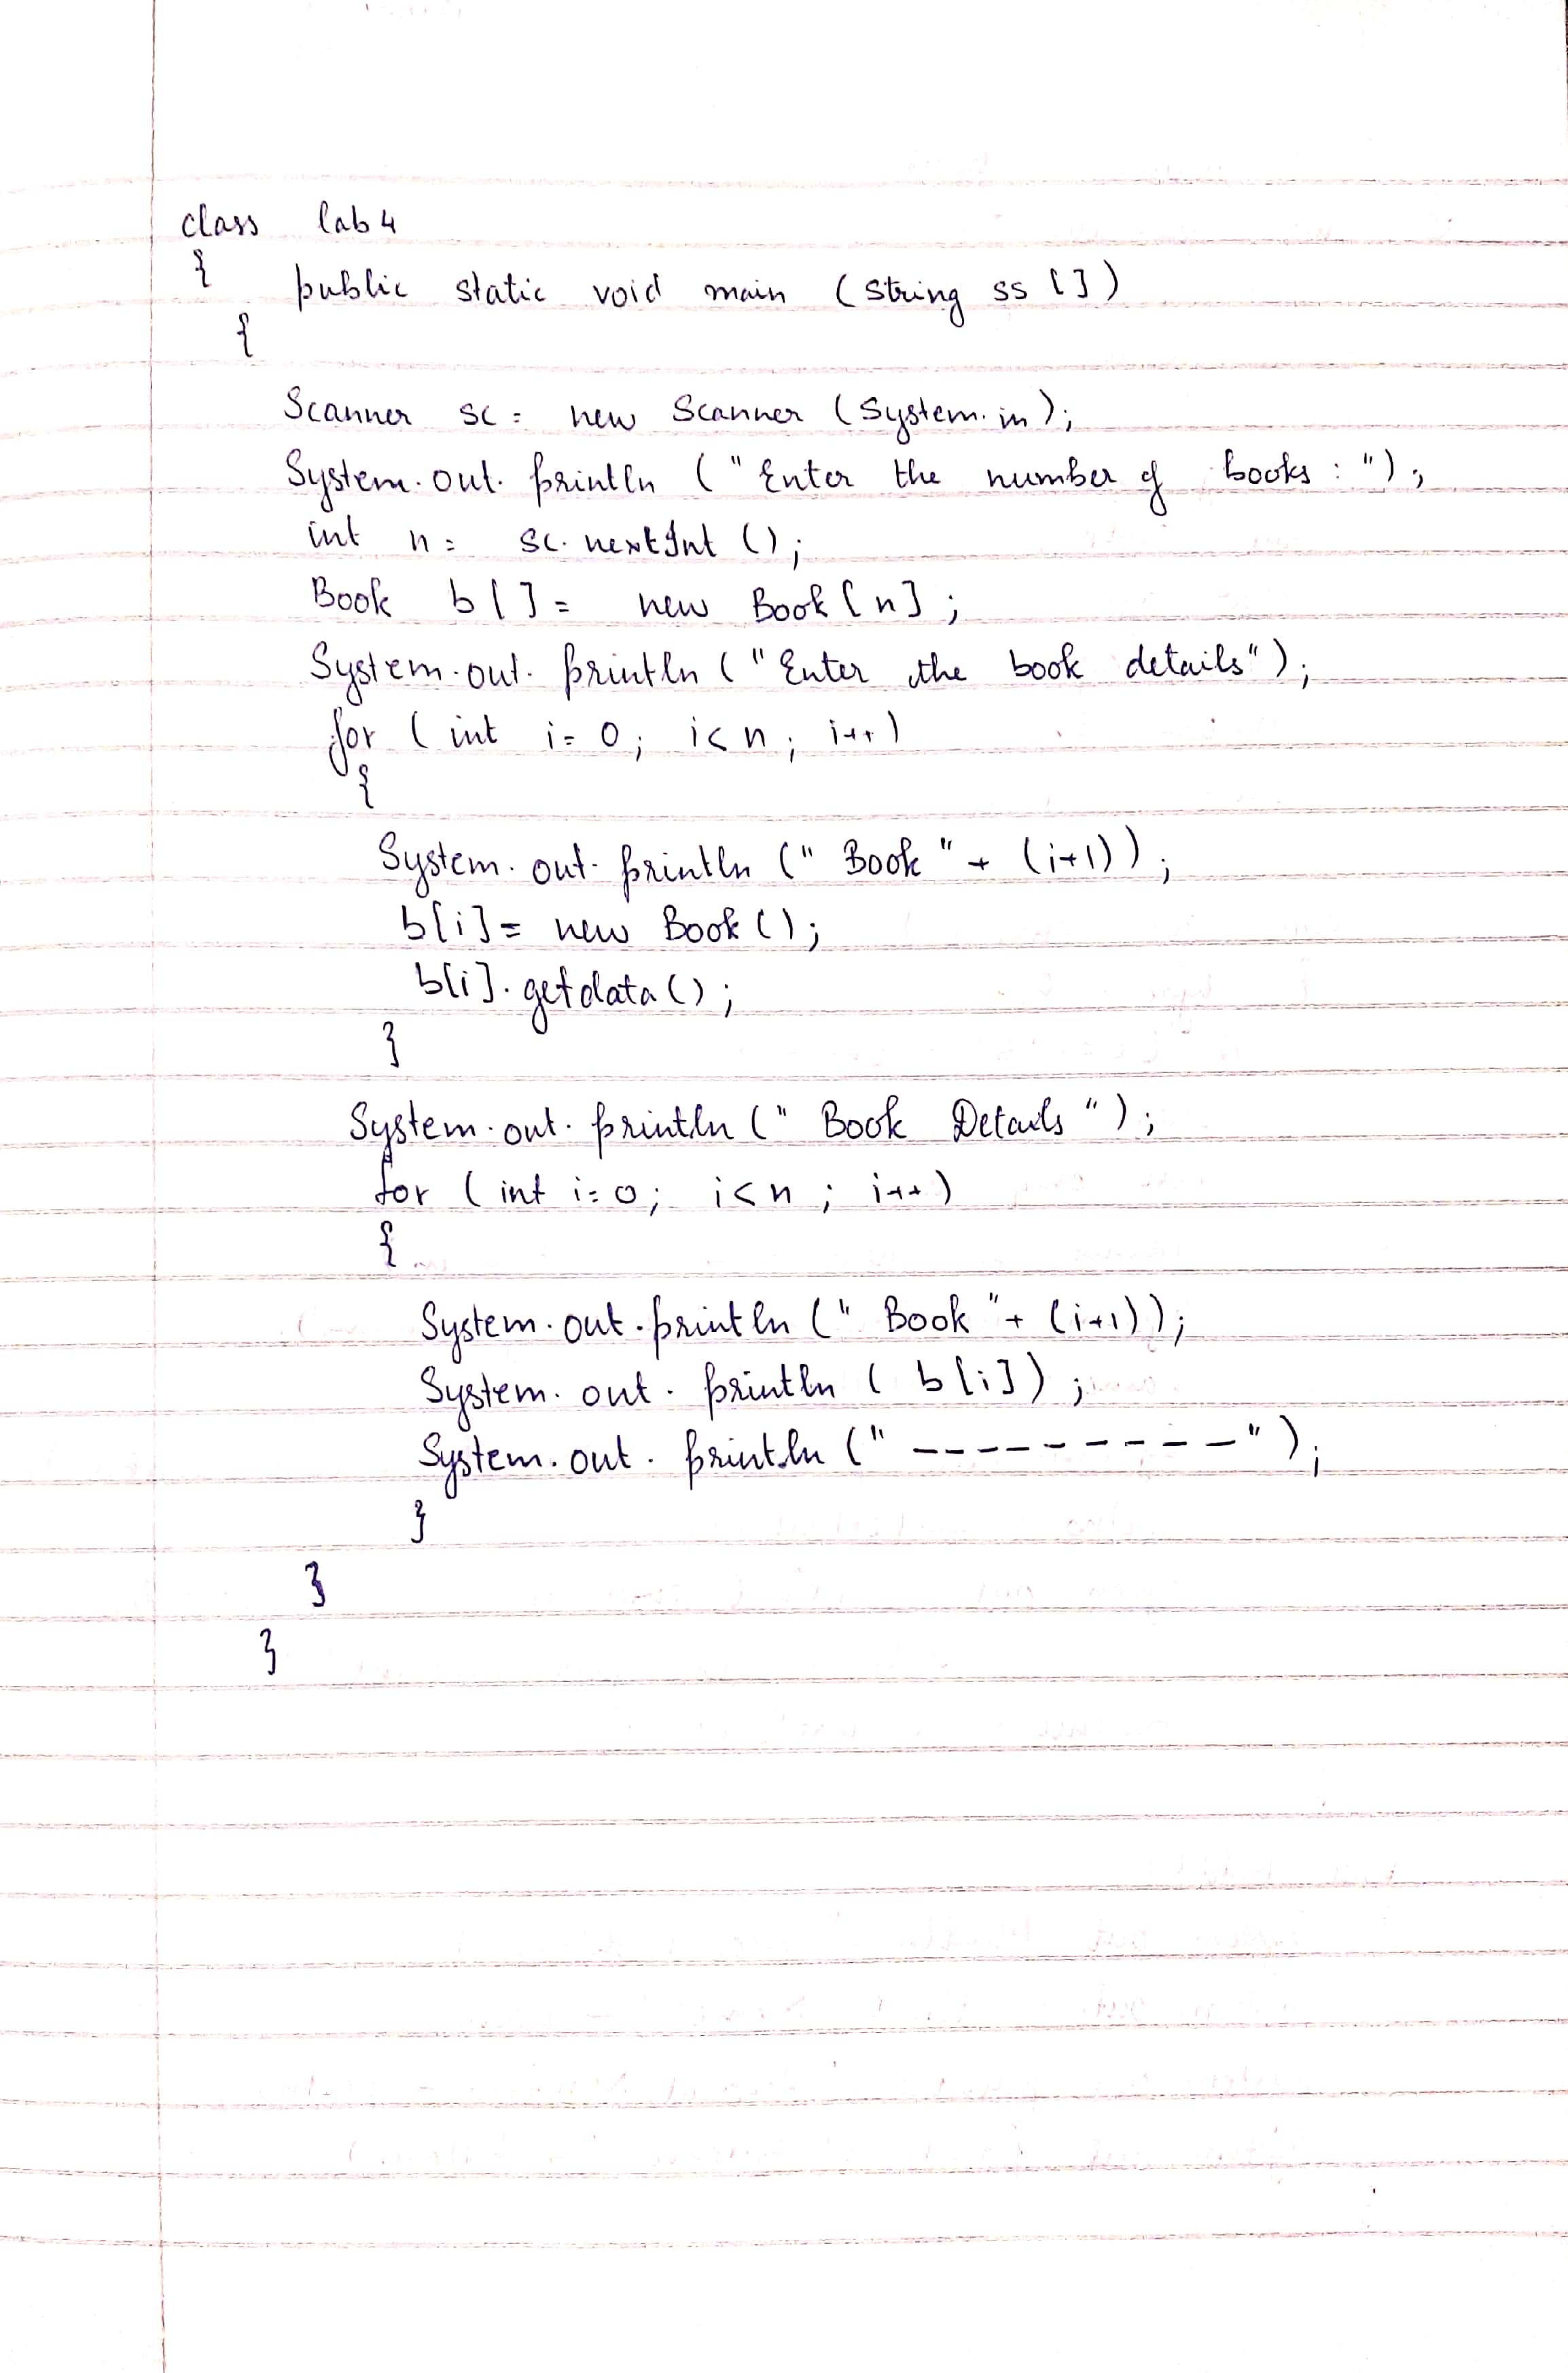 class lab 4
{ public static void main (String ss [])
{
Scanner sc = new Scanner (System.in);
System.out.println ("Enter the number of books : ");
int n = sc.nextInt ();
Book b[] = new Book [n] ;
System.out.println ("Enter the book details");
for ( int i = 0; i < n ; i++)
{
System.out.println (" Book " + (i+1)) ;
b[i] = new Book ();
b[i].getdata () ;
}
System.out.println (" Book Details ") ;
for ( int i = 0; i < n ; i++)
{
System.out.println (" Book " + (i+1));
System.out.println ( b[i]) ;
System.out.println (" ---------- ") ;
}
}
}